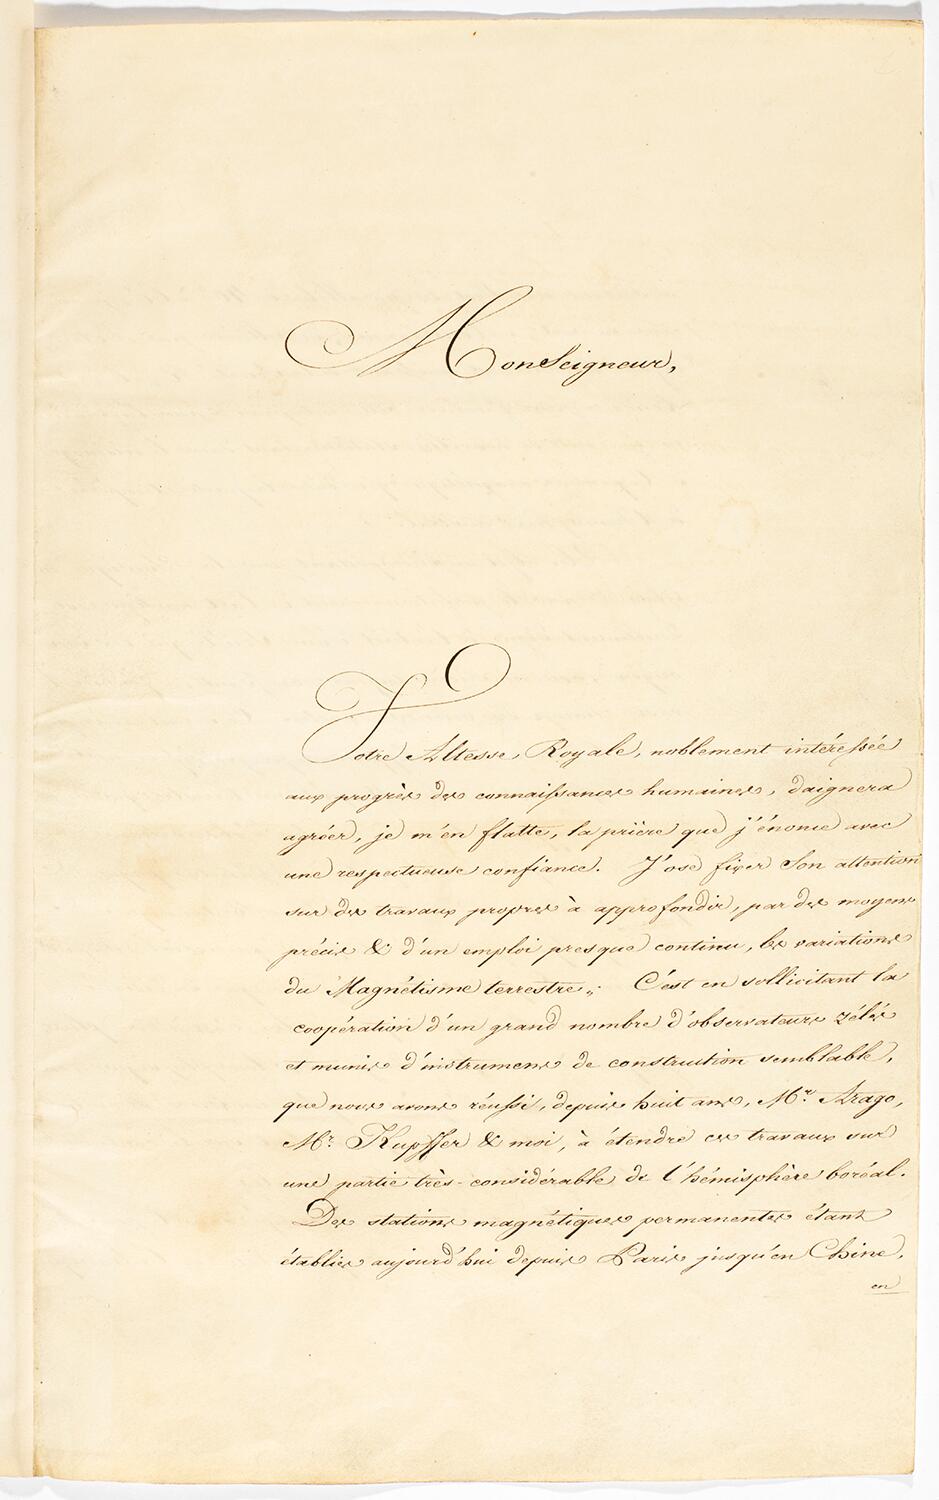 Monseigneur,
Votre Altesse, Royale, noblement intéressée
aux progrès des connaissances humaines, daignera
agréer, je m'en flatte, la prière que j'énonce avec
une respectueuse confiance. J'ose fixer Son attention
sur des travaux propres à approfondir, par des moyens
précis & d'un emploi presque continu, les variations
du Magnétisme terrestre. C'est en sollicitant la
coopération d'un grand nombre d'observateurs zélés
et munis d'instrumens de construction semblable,
que nous avons réussi, depuis huit ans, Mr. Arago,
Mr. Kupffer & moi, à étendre ces travaux sur
une partie très-considérable de l'hémisphère boréal.
Des stations magnétiques permanentes étant
établies aujourd'hui depuis Paris jusqu'en Chine,
en